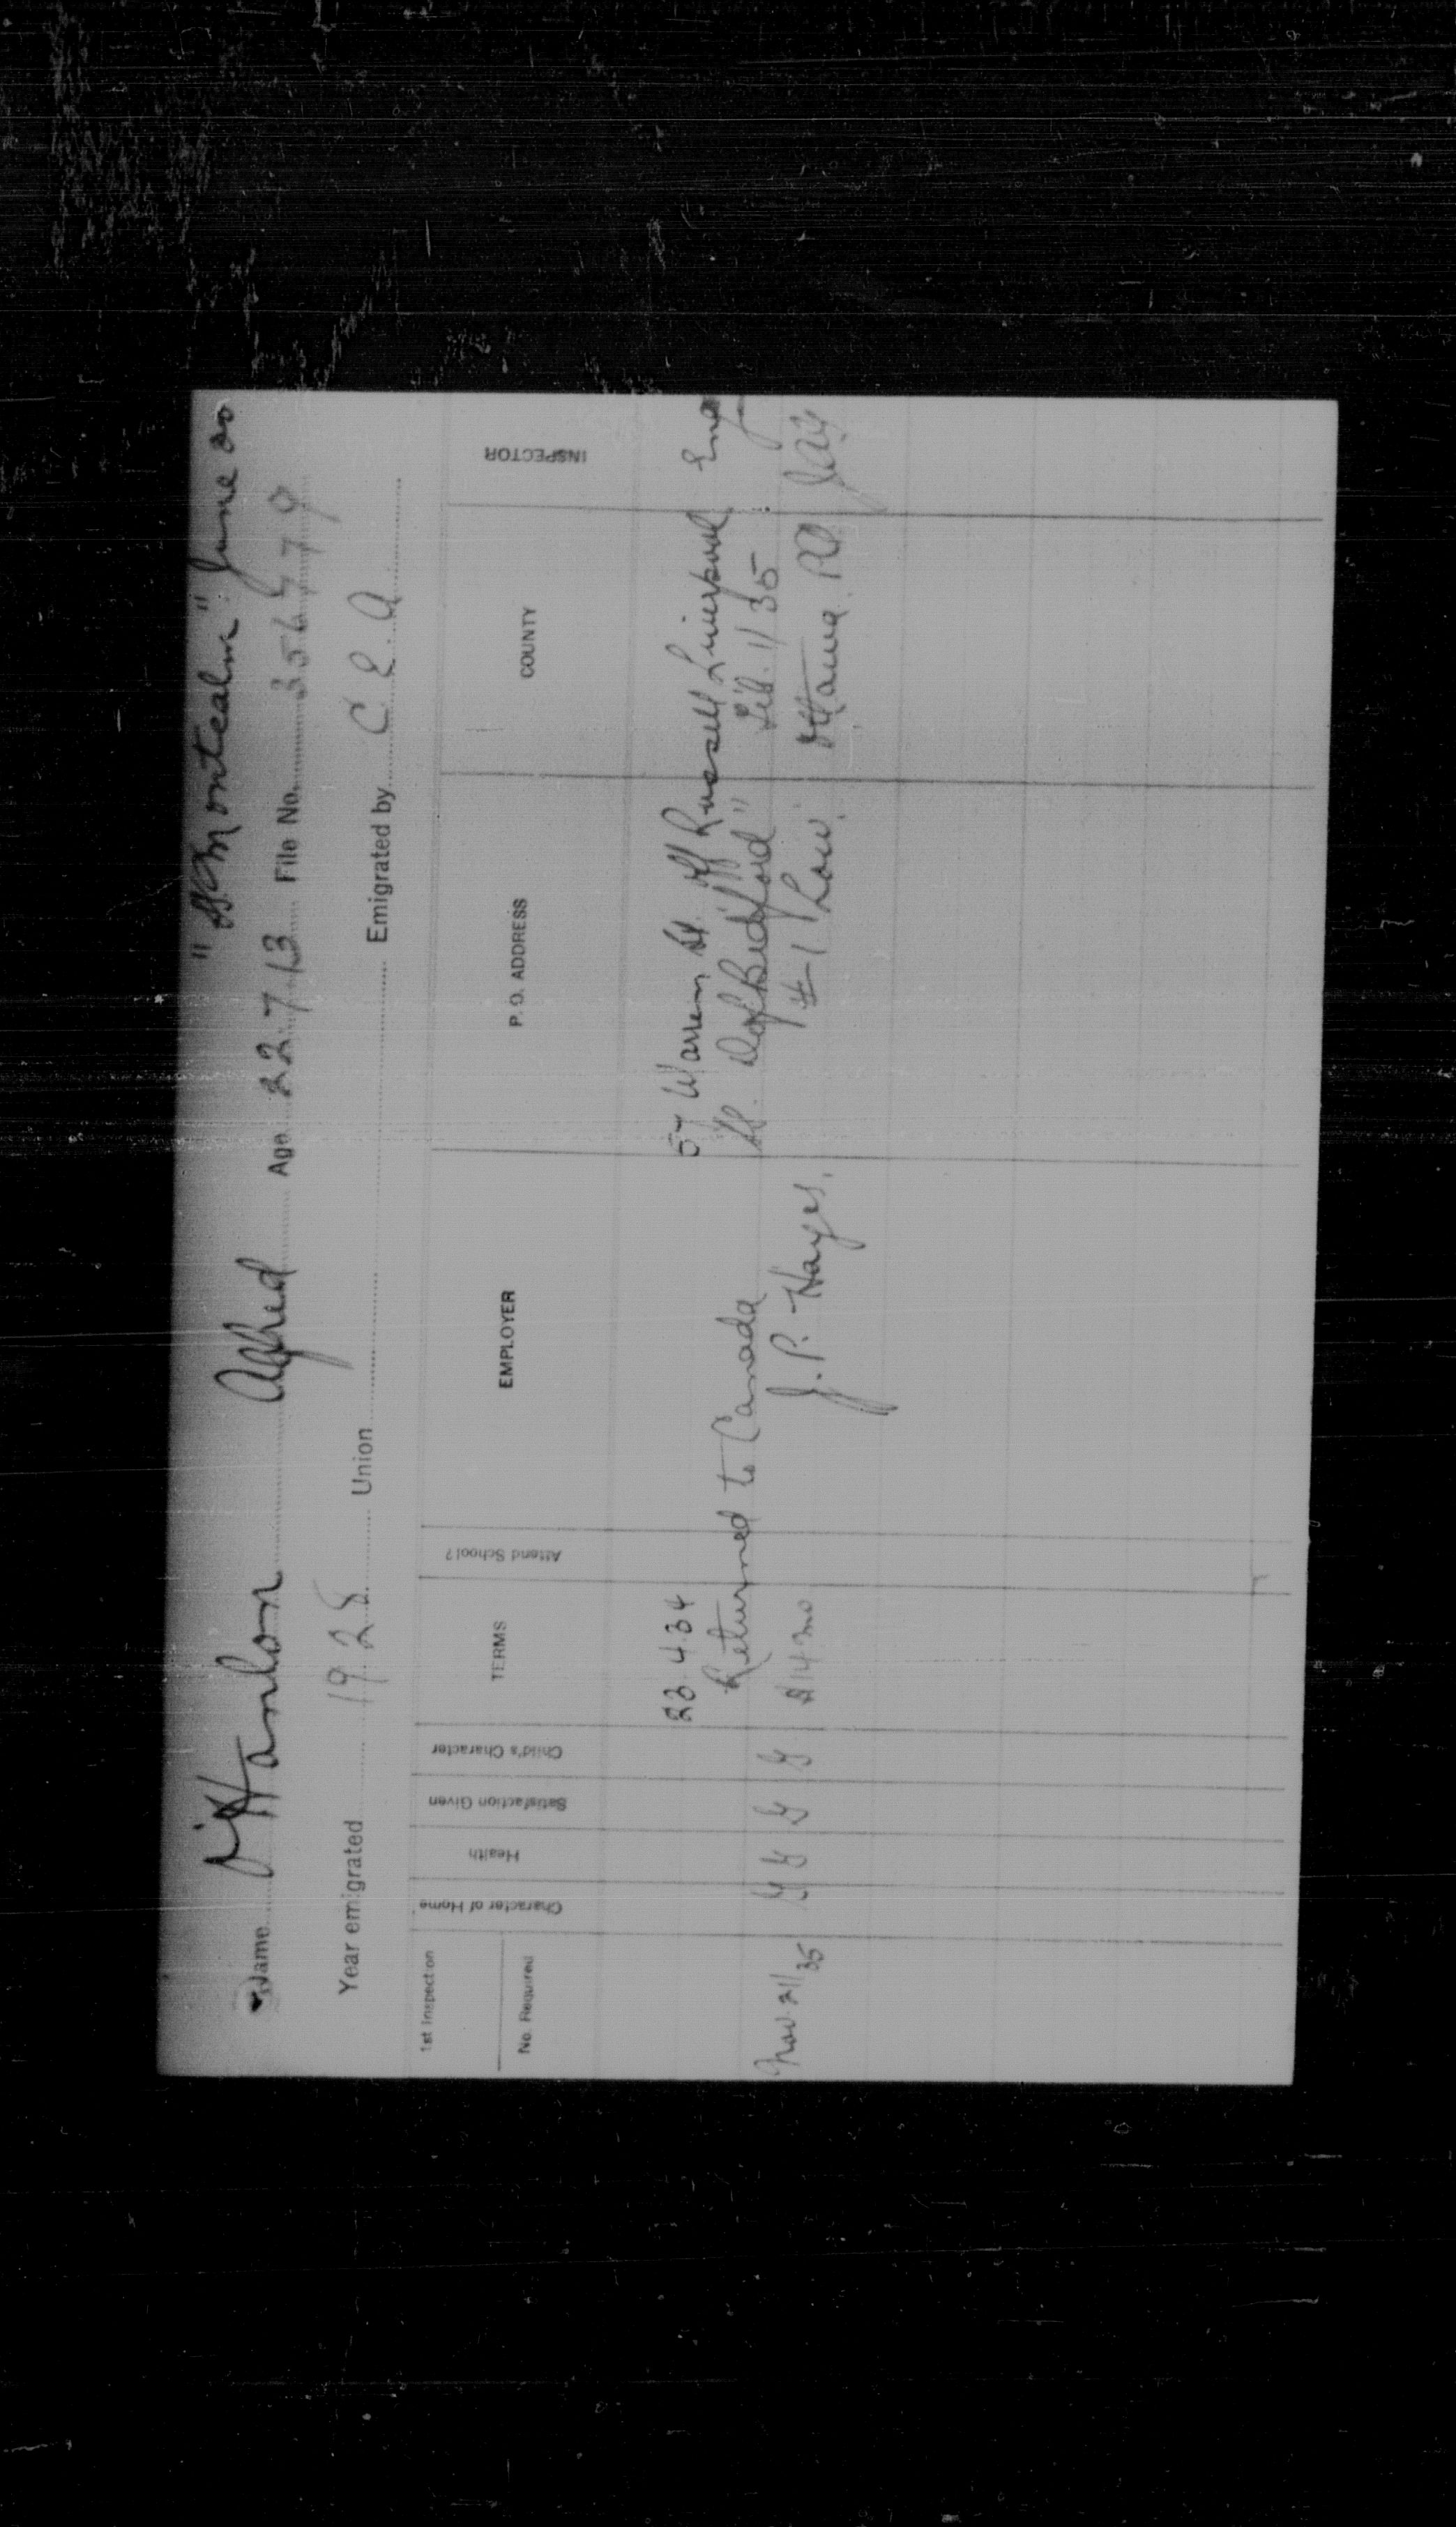 "SS Montcalm" June
Name O'Hanlon Alfred Age 22.7.13 File No. 356579
Year emigrated 1928 Union Emigrated by C.E.A.
1st Inspection
No. Required
Character of Home
Health
Satisfaction Given
Child's Character
TERMS
Attend School?
EMPLOYER
P. O. ADDRESS
COUNTY
INSPECTOR
23.4.34 57 Warren St. off Russell Liverpool Eng
Returned to Canada Bedford" Feb. 1/35
Nov. 21/35 G G G G $14 mo J. P. Hayes, #1 Low. Ottawa. PQ